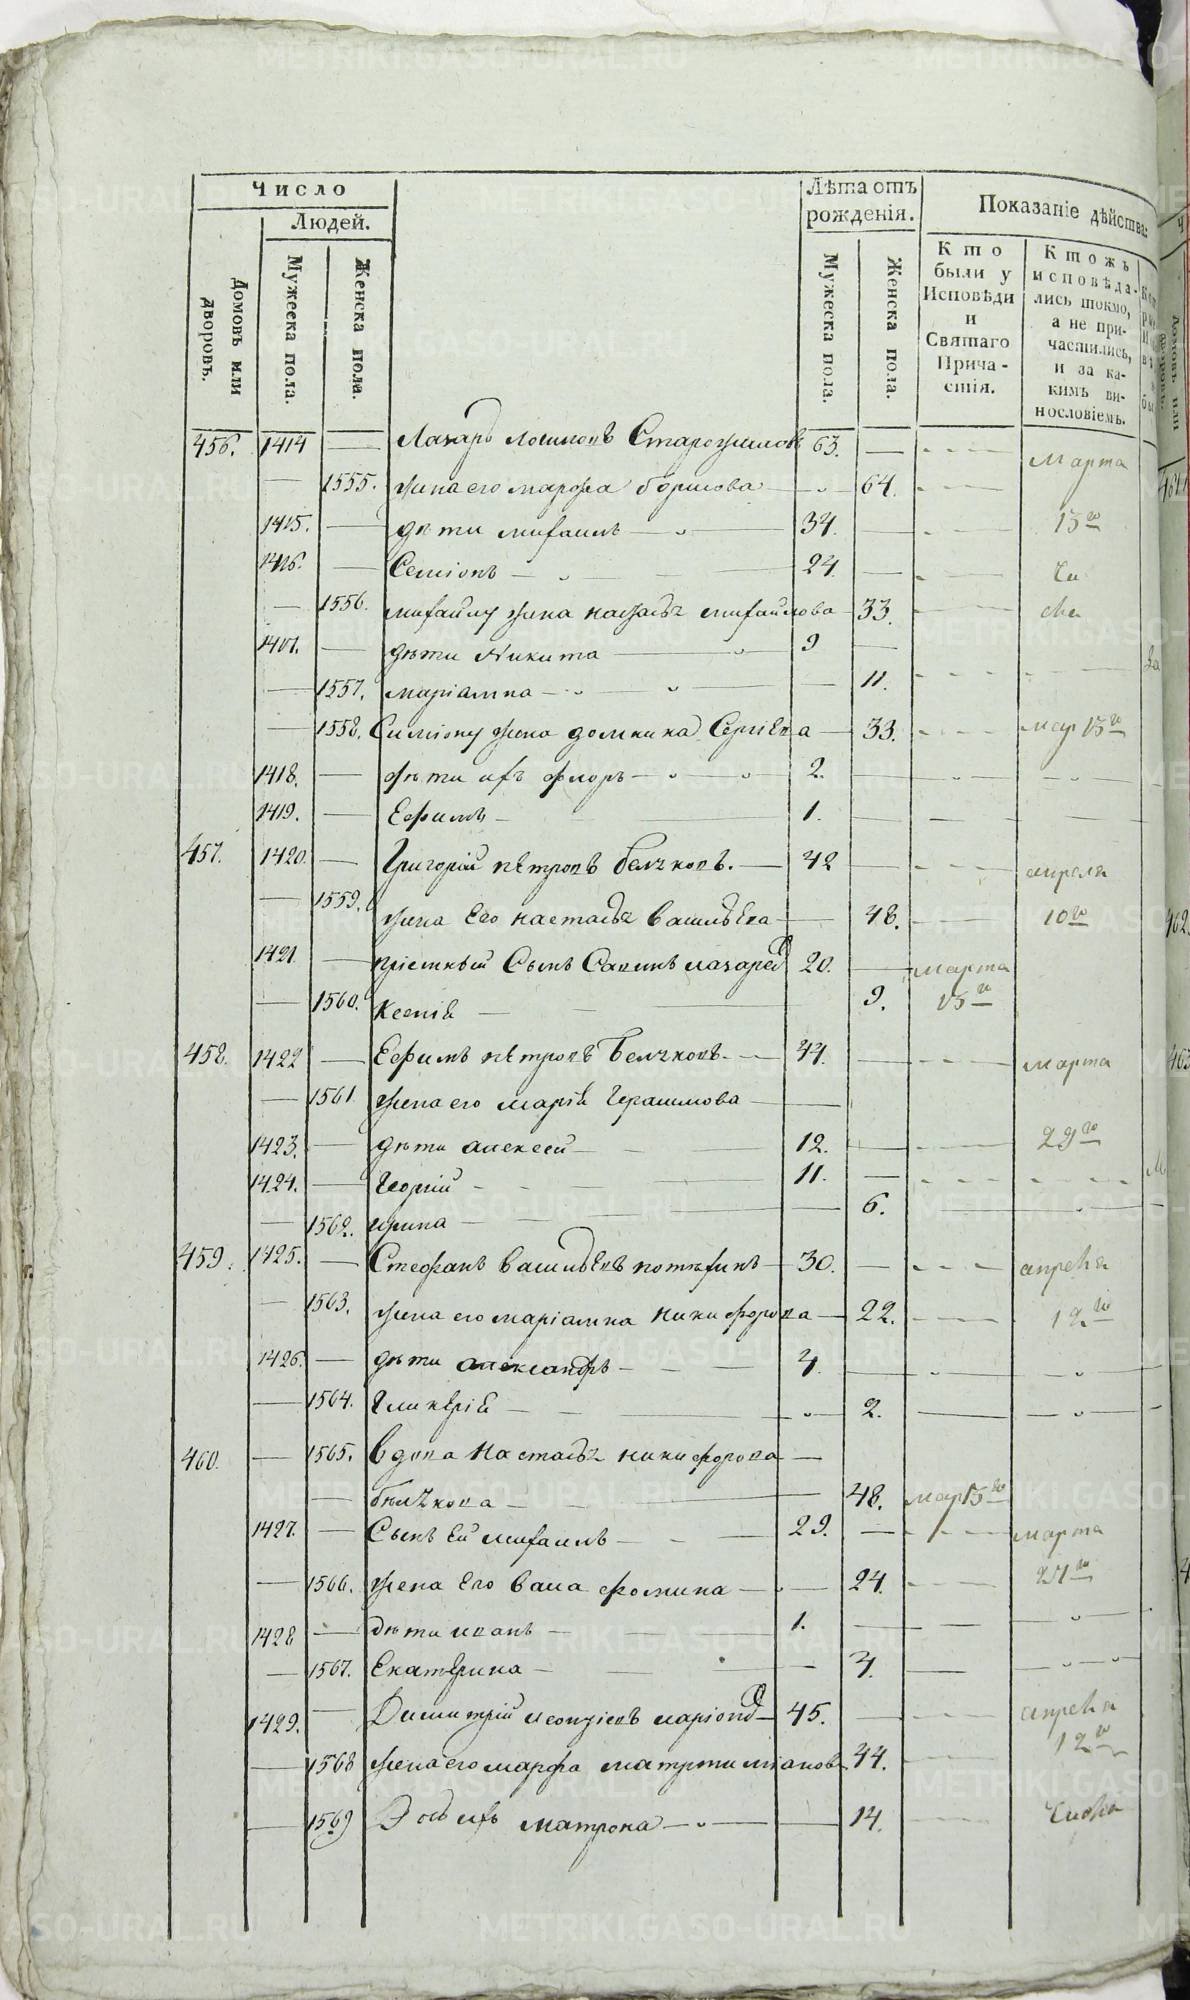 Число
Людей.
Домовъ или дворовъ.
Мужеска пола.
Женска пола.
Лѣта отъ рожденія.
Мужеска пола.
Женска пола.
Показаніе дѣйства:
Кто были у Исповѣди и Святаго Причастія.
Ктожъ исповѣдались токмо, а не причастились, и за какимъ винословіемъ.
456. 1414 — Лазарь 63. — Марта
— 1555. жена его марфа борисова — 64.
1415. — дѣти михаилъ — 34. — 15го
1416. — Семіонъ — 24. —
— 1556. михайлу жена михайлова — 33.
1417. — дѣти Никита — 9 —
— 1557. маріамна — 11.
— 1558. Симіону жена домника Сергіева — 33. мар 15го
1418. — дѣти ихъ флоръ — 2.
1419. — Ефимъ — 1.
457. 1420. — Григорій петровъ белчковъ. — 42 — апреля
— 1559. жена Его настасья васильева — 48. — 10го
1421 — пріемный Сынъ 20. — марта
— 1560. Ксенія — 9. 15го
458. 1422 — Ефимъ петровъ белчковъ — 44. — марта
— 1561 жена его марія Герасимова —
1423. — дѣти алексей — 12. — 29го
1424. — Георгій — 11. —
— 1562. ирина — 6.
459. 1425. — Стефанъ васильевъ потѣхинъ — 30. — апреля
— 1563. жена его маріамна никифорова — 22. — 12го
1426. — дѣти александръ — 4.
— 1564. Гликерія — 2.
460. — 1565. вдова настасья никифорова —
— бѣлчкова — 48. мар 15го
1427. — Сынъ Ей михаилъ — 29. — марта
— 1566. жена Его фомина — 24.
1428 — дѣти иванъ — 1.
— 1567. Екатерина — 4.
1429. — Димитрій 45. — апреля
12го
— 1568 жена его марфа 44.
— 1569 Дочь ихъ матрона — 14.